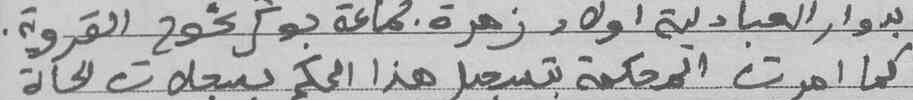 بدوار العبادلة اولاد زهرة. جماعة بوكرحوح القروية.
كما امرت المحكمة بتسجيل هذا الحكم بسجلات الحالة